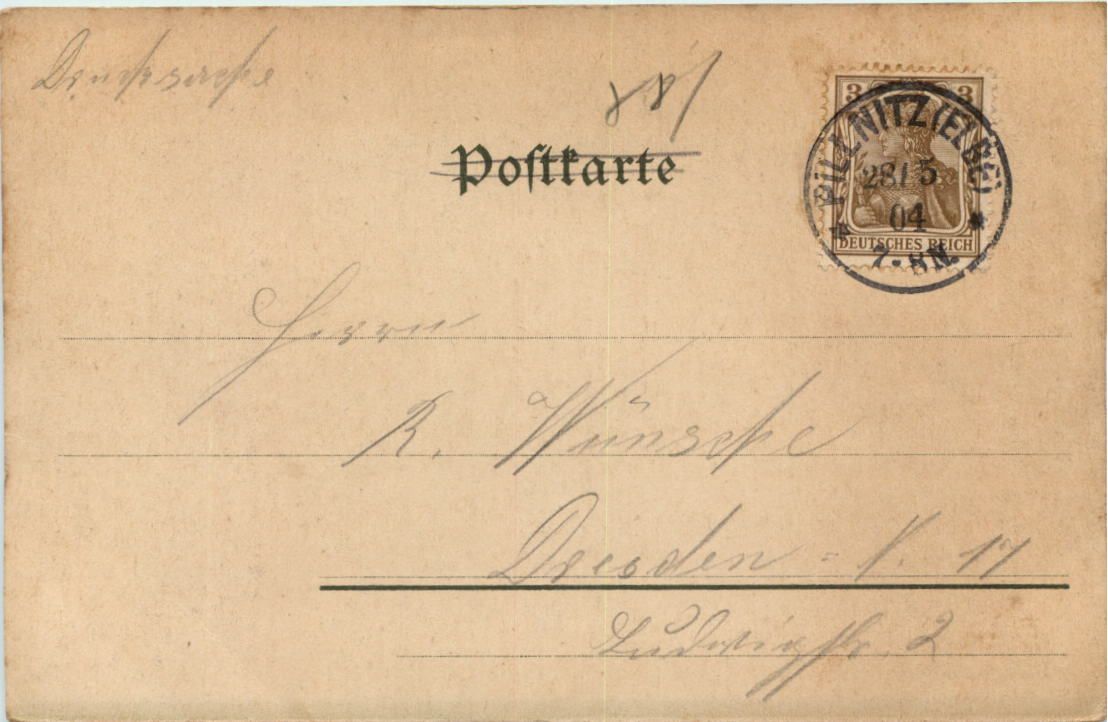 Drucksache
Postkarte
3 3
PILLNITZ (ELBE)
28/ 5
04
7-8N.
DEUTSCHES REICH
Herrn
R. Wünsche
Dresden - N. 17
Ludwigstr. 2